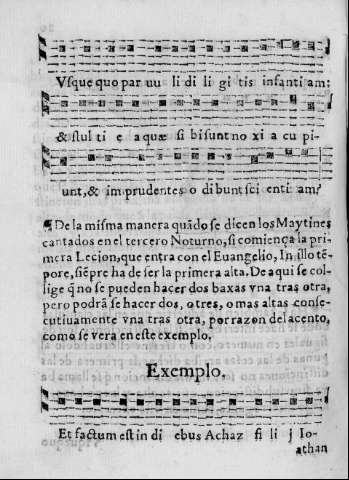 Vsque quo par uu li di li gi tis infanti am:
& stul ti e a quæ si bi sunt no xi a cu pi-
unt, & im prudentes o di bunt sci enti am?
¶ De la misma manera quãdo se dicen los Maytines
cantados en el tercero Noturno, si comiença la pri-
mera Lecion, que entra con el Euangelio, In illo tẽ-
pore, siẽpre ha de ser la primera alta. De aqui se col-
lige q̃ no se pueden hacer dos baxas vna tras otra,
pero podrã se hacer dos, o tres, o mas altas conse-
cutiuamente vna tras otra, por razon del acento,
como se vera en este exemplo,
Exemplo,
Et factum est in di ebus Achaz fi li j Io-
athan